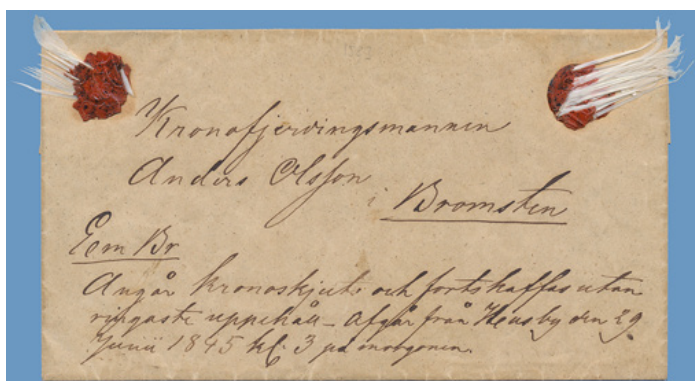 Kronofjerdingsmannen
Anders Olsson
i Bromsten
Eem Br
Angår kronoskjuts och fortskaffas utan
ringaste uppehåll – afgår från den 29
Junii 1845 kl: 3 på morgonen.